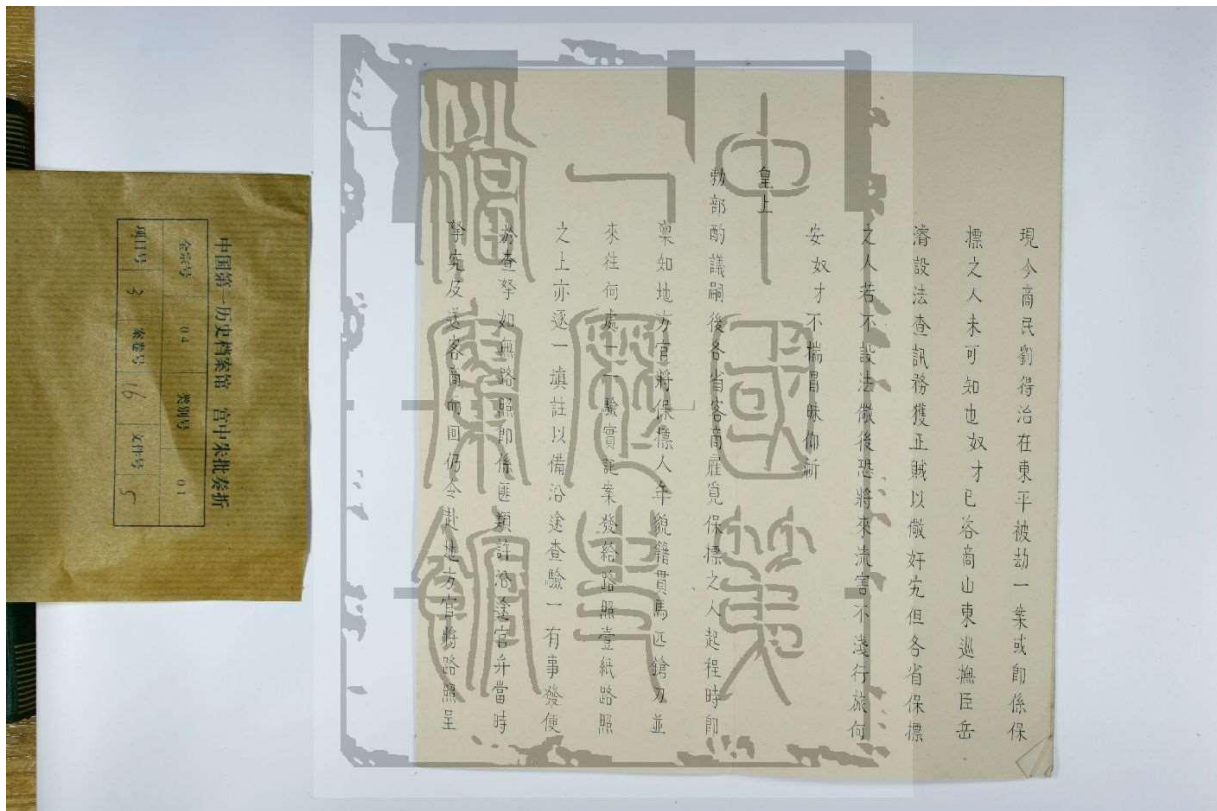 現今商民劉得治在東平被劫一案或即係保
標之人未可知也奴才已咨商山東巡撫臣岳
濬設法查訊務獲正賊以儆奸宄但各省保標
之人若不設法儆後恐將來流害不淺行旅何
安奴才不揣冒昧仰祈
皇上
勅部酌議嗣後各省客商雇覓保標之人起程時即
稟知地方官將保標人年貌籍貫馬匹鎗刀並
來往何處一一驗實記案發給路照壹紙路照
之上亦逐一填註以備沿途查驗一有事發便
於查拏如無路照即係匪類許沿途官弁當時
拏究及送客商而回仍令赴地方官將路照呈
中国第一历史档案馆 宫中朱批奏折
全宗号 04 类别号 01
项目号 3 案卷号 16 文件号 5
中國第一歷史檔案館